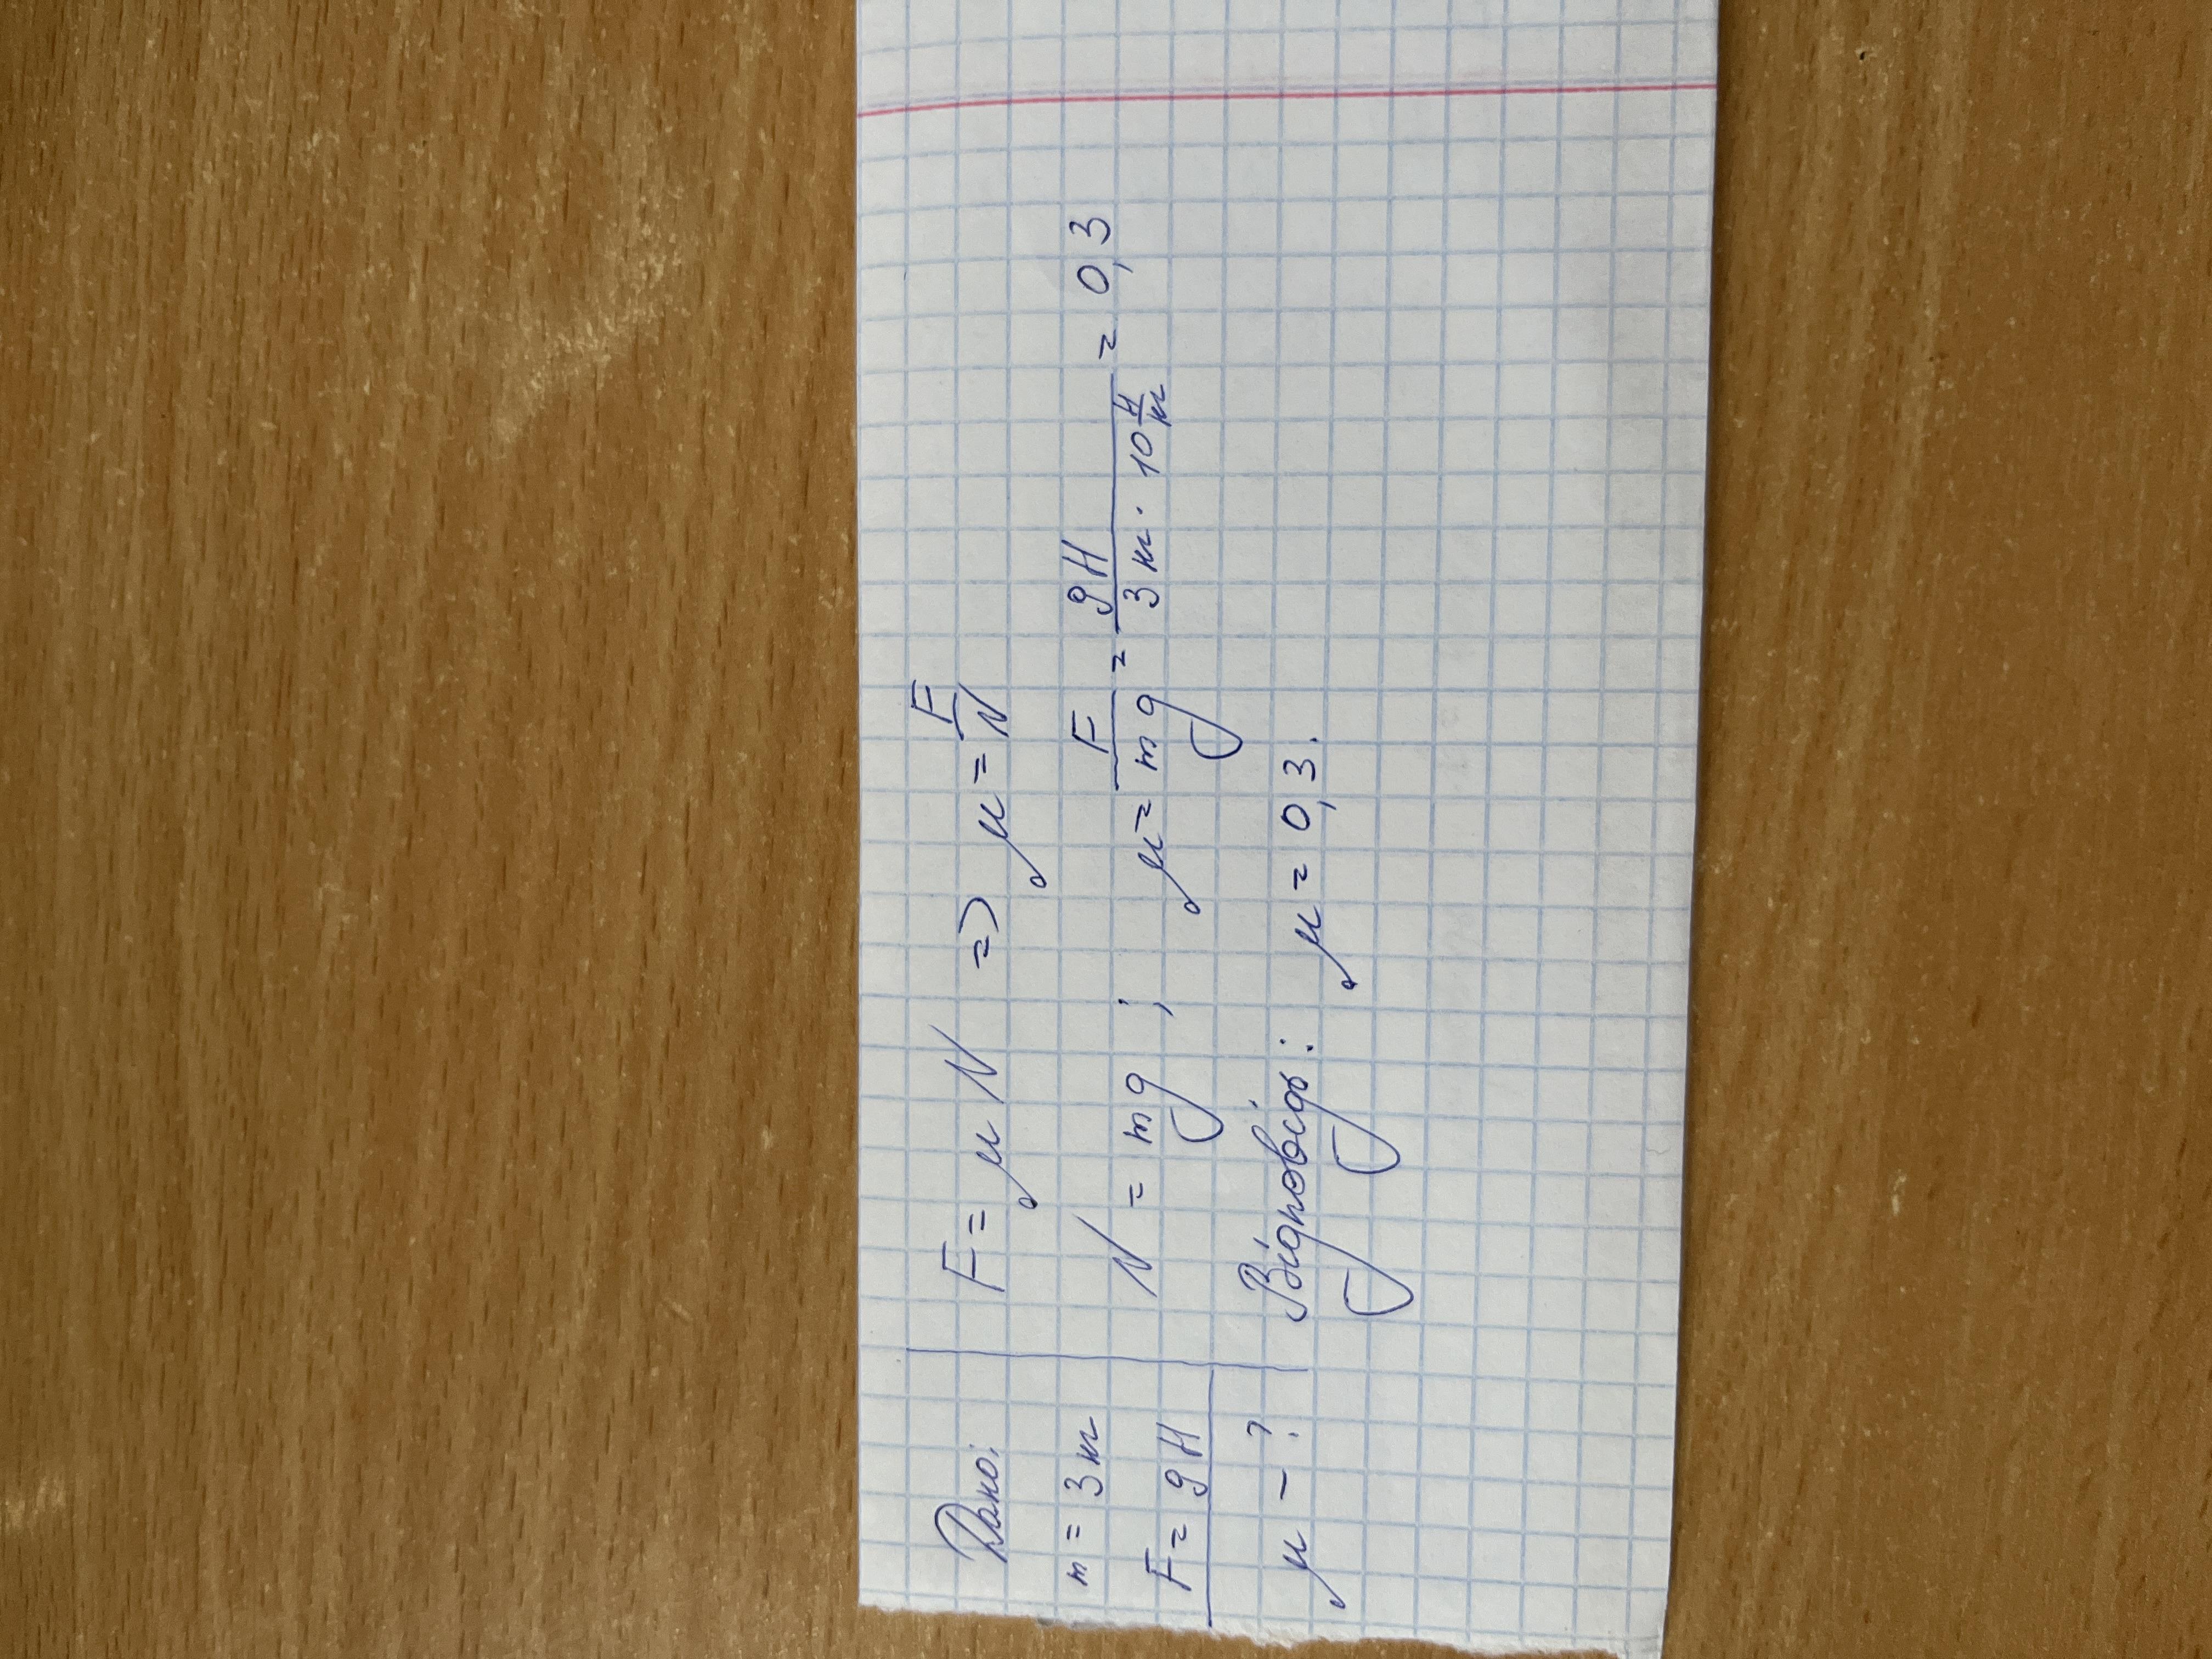 Дано:
m = 3 кг
F = 9 Н
μ - ?
F = μ N => μ = F/N
N = mg ; μ = F/mg = 9Н/3 кг · 10 Н/кг = 0,3
Відповідь: μ = 0,3.